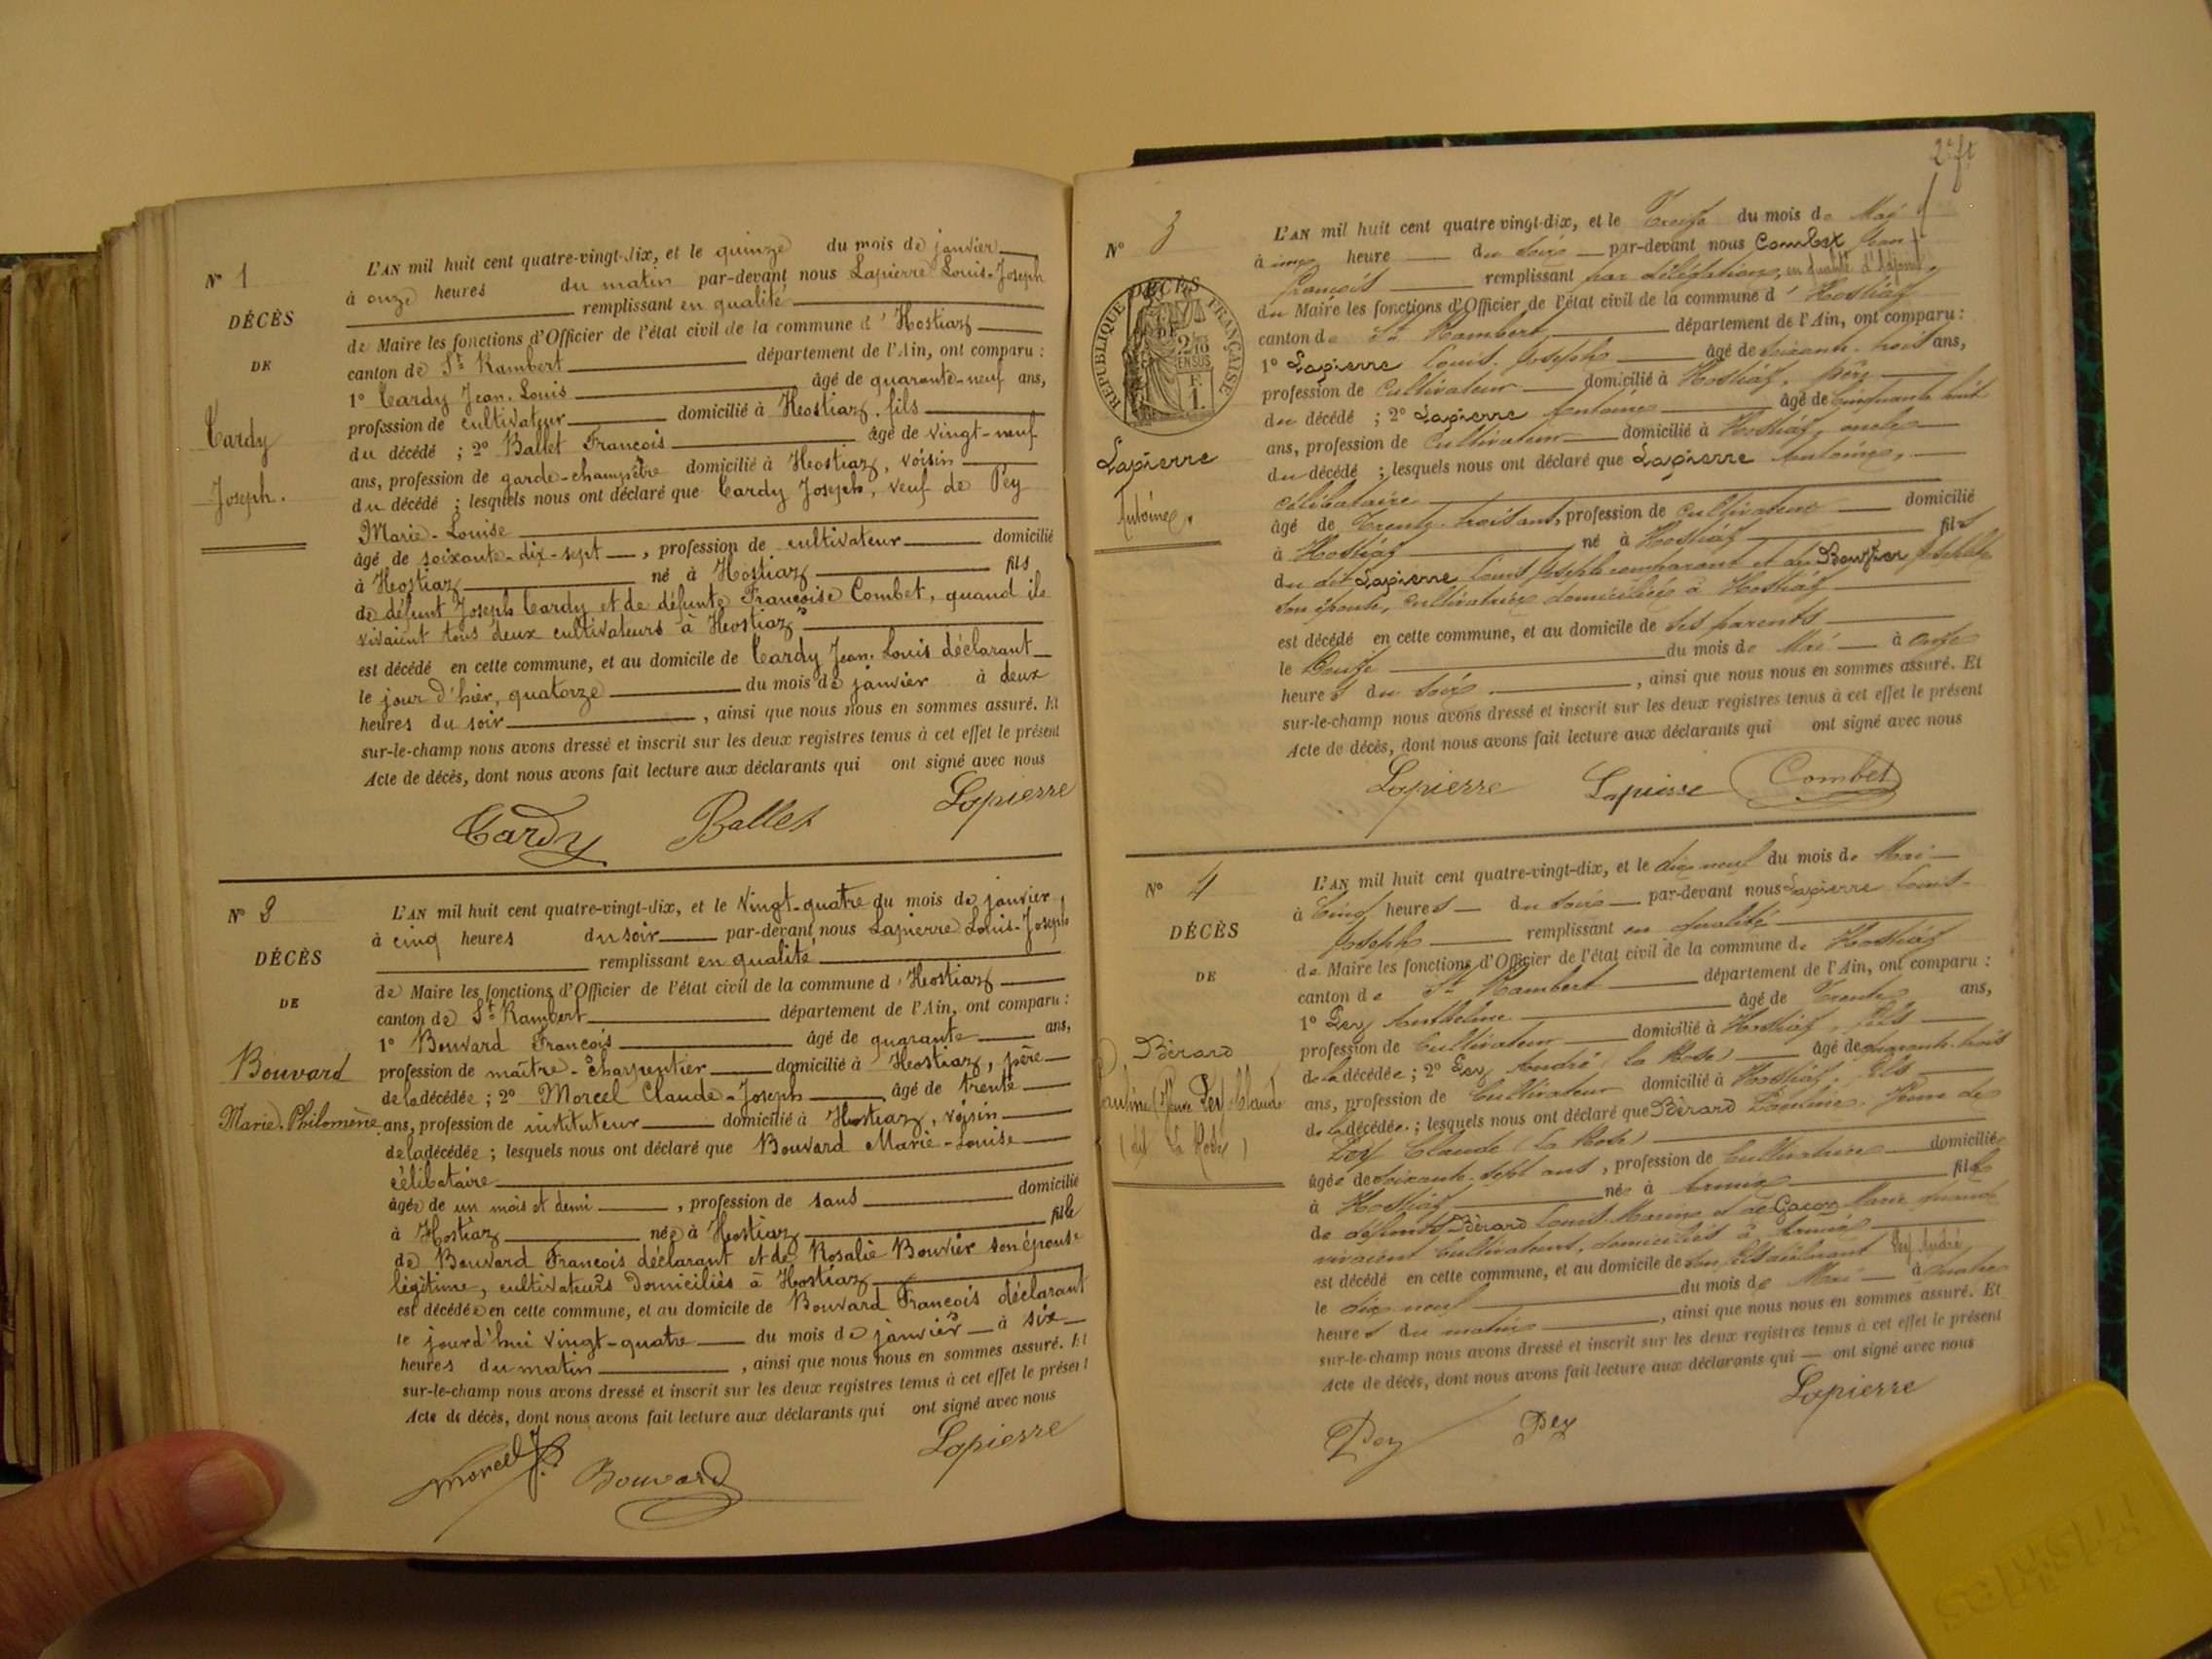 N° 1
DÉCÈS
DE
Cardy
Joseph.
L'AN mil huit cent quatre-vingt-dix, et le quinze du mois de janvier
à onze heures du matin par-devant nous Lapierre Louis-Joseph
remplissant en qualité
de Maire les fonctions d'Officier de l'état civil de la commune d'Hostiaz
canton de St Rambert département de l'Ain, ont comparu :
1° Cardy Jean-Louis âgé de quarante-neuf ans,
profession de cultivateur domicilié à Hostiaz, fils
du décédé ; 2° Ballet François âgé de vingt-neuf
ans, profession de garde-champêtre domicilié à Hostiaz, voisin
du décédé ; lesquels nous ont déclaré que Cardy Joseph, veuf de Pey
Marie-Louise
âgé de soixante-dix-sept, profession de cultivateur domicilié
à Hostiaz né à Hostiaz fils
de défunt Joseph Cardy et de défunte Françoise Combet, quand ils
vivaient tous deux cultivateurs à Hostiaz
est décédé en cette commune, et au domicile de Cardy Jean-Louis déclarant
le jour d'hier, quatorze du mois de janvier à deux
heures du soir, ainsi que nous nous en sommes assuré. Et
sur-le-champ nous avons dressé et inscrit sur les deux registres tenus à cet effet le présent
Acte de décès, dont nous avons fait lecture aux déclarants qui ont signé avec nous
Cardy Ballet Lapierre
N° 2
DÉCÈS
DE
Bouvard
Marie-Philomène
L'AN mil huit cent quatre-vingt-dix, et le vingt-quatre du mois de janvier
à cinq heures du soir par-devant nous Lapierre Louis-Joseph
remplissant en qualité
de Maire les fonctions d'Officier de l'état civil de la commune d'Hostiaz
canton de St Rambert département de l'Ain, ont comparu :
1° Bouvard François âgé de quarante ans,
profession de maître-charpentier domicilié à Hostiaz, père
de la décédée ; 2° Morcel Claude-Joseph âgé de trente
ans, profession de instituteur domicilié à Hostiaz, voisin
de la décédée ; lesquels nous ont déclaré que Bouvard Marie-Louise
célibataire
âgée de un mois et demi, profession de sans domicilié
à Hostiaz née à Hostiaz fille
de Bouvard François déclarant et de Rosalie Bouvier son épouse
légitime, cultivateurs domiciliés à Hostiaz
est décédée en cette commune, et au domicile de Bouvard François déclarant
le jourd'hui vingt-quatre du mois de janvier à six
heures du matin, ainsi que nous nous en sommes assuré. Et
sur-le-champ nous avons dressé et inscrit sur les deux registres tenus à cet effet le présent
Acte de décès, dont nous avons fait lecture aux déclarants qui ont signé avec nous
Morcel Bouvard Lapierre
2e ft
N° 3
DÉCÈS
DE
RÉPUBLIQUE FRANÇAISE
2/10 EN SUS
F. 1.
Lapierre
Antoine.
L'AN mil huit cent quatre-vingt-dix, et le Treize du mois de Mai
à une heure du soir par-devant nous Combet Jean
François remplissant par délégation, en qualité d'adjoint,
du Maire les fonctions d'Officier de l'état civil de la commune d'Hostiaz
canton de St Rambert département de l'Ain, ont comparu :
1° Lapierre Louis-Joseph âgé de soixante-trois ans,
profession de Cultivateur domicilié à Hostiaz, père
du décédé ; 2° Lapierre Antoine âgé de cinquante huit
ans, profession de Cultivateur domicilié à Hostiaz, oncle
du décédé ; lesquels nous ont déclaré que Lapierre Antoine,
célibataire
âgé de Trente-trois ans, profession de Cultivateur domicilié
à Hostiaz né à Hostiaz fils
du dit Lapierre Louis Joseph comparant et de Bouvier
son épouse, cultivatrice domiciliée à Hostiaz
est décédé en cette commune, et au domicile de ses parents
le Douze du mois de Mai à onze
heures du soir, ainsi que nous nous en sommes assuré. Et
sur-le-champ nous avons dressé et inscrit sur les deux registres tenus à cet effet le présent
Acte de décès, dont nous avons fait lecture aux déclarants qui ont signé avec nous
Lapierre Lapierre Combet
N° 4
DÉCÈS
DE
Bérard
Pauline (Veuve Pey Claude
(dit la Rose)
L'AN mil huit cent quatre-vingt-dix, et le dix neuf du mois de Mai
à Cinq heures du soir par-devant nous Lapierre Louis-
Joseph remplissant en qualité
de Maire les fonctions d'Officier de l'état civil de la commune de Hostiaz
canton de St Rambert département de l'Ain, ont comparu :
1° Pey Anthelme âgé de Trente ans,
profession de Cultivateur domicilié à Hostiaz, fils
de la décédée ; 2° Pey André (la Rose) âgé de quarante-trois
ans, profession de Cultivateur domicilié à Hostiaz, fils
de la décédée ; lesquels nous ont déclaré que Bérard Pauline, Veuve de
Pey Claude (la Rose)
âgée de soixante-sept ans, profession de Cultivatrice domiciliée
à Hostiaz née à Armix fille
de défunts Bérard Louis Marme et de Gacon Marie quand
vivaient Cultivateurs, domiciliés à Armix
est décédé en cette commune, et au domicile de son fils déclarant Pey André
le dix neuf du mois de Mai à quatre
heures du matin, ainsi que nous nous en sommes assuré. Et
sur-le-champ nous avons dressé et inscrit sur les deux registres tenus à cet effet le présent
Acte de décès, dont nous avons fait lecture aux déclarants qui — ont signé avec nous
Pey Pey Lapierre